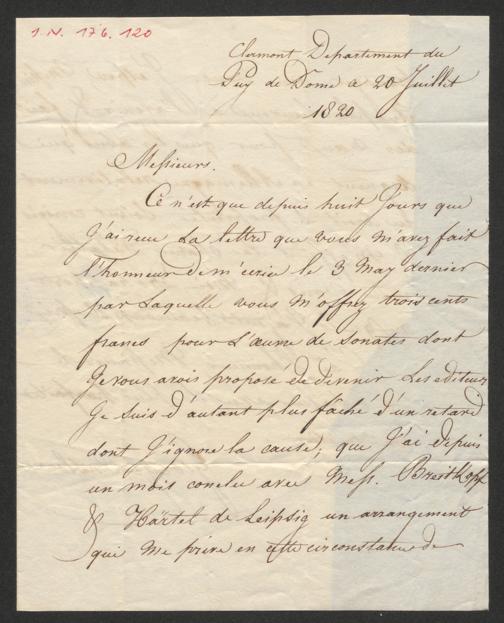 J.N. 176.120
Clermont Departement du
Puy de Dome a 20 Juillet
1820
Messieurs.
Ce n'est que depuis huit Jours que
J'ai reçue La lettre que vous m'avez fait
l'honneur de m'ecrire le 3 May dernier
par Laquelle vous m'offrez trois cents
francs pour L'œuvre de sonates dont
Je vous avois proposé de devenir Les editeurs
Je suis d'autant plus faché d'un retard
dont J'ignore la cause, que J'ai depuis
un mois conclu avec Mess. Breitkopf
& Härtel de Leipsig un arrangement
qui me prive en cette circonstance de